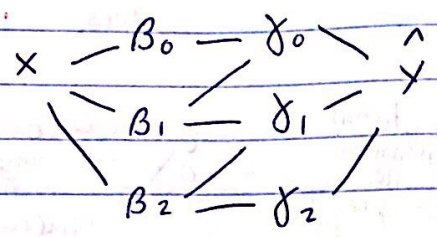 x β₀ γ₀ ŷ
β₁ γ₁
β₂ γ₂